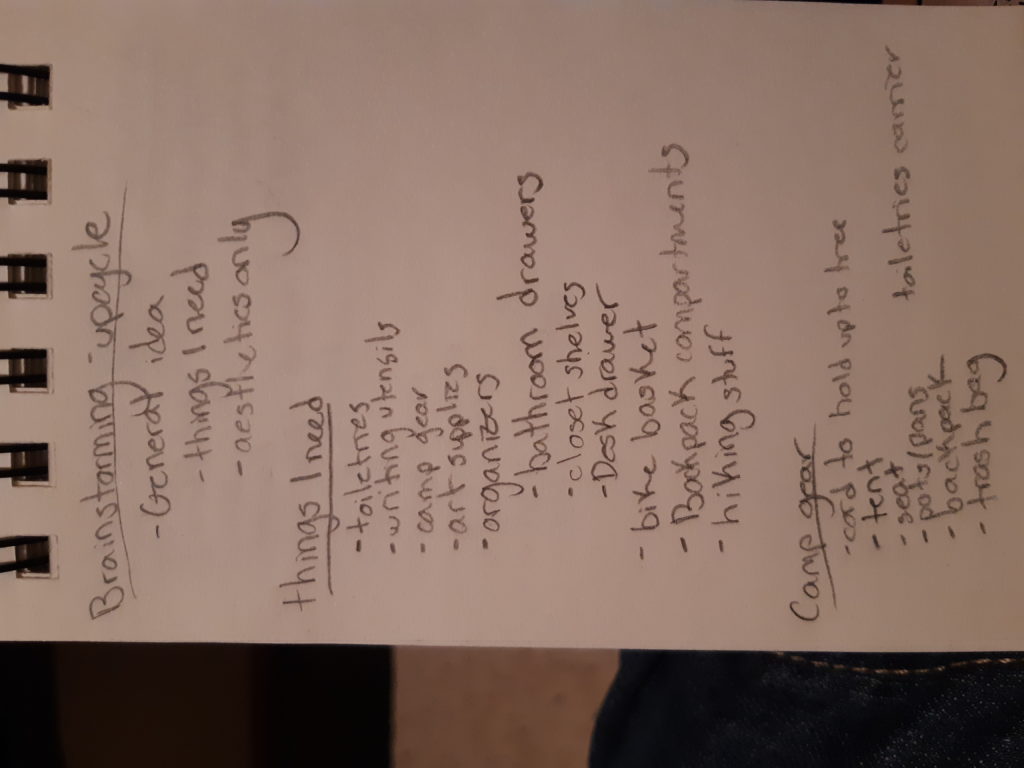 Brainstorming upcycle
- General idea
- things I need
- aesthetics only
things I need
- toiletries
- writing utensils
- camp gear
- art supplies
- organizers
- bathroom drawers
- closet shelves
- Desk drawer
- bike basket
- Backpack compartments
- hiking stuff
Camp gear
- cord to hold up to tree
- tent
- seat toiletries carrier
- pots/pans
- backpack
- trash bag